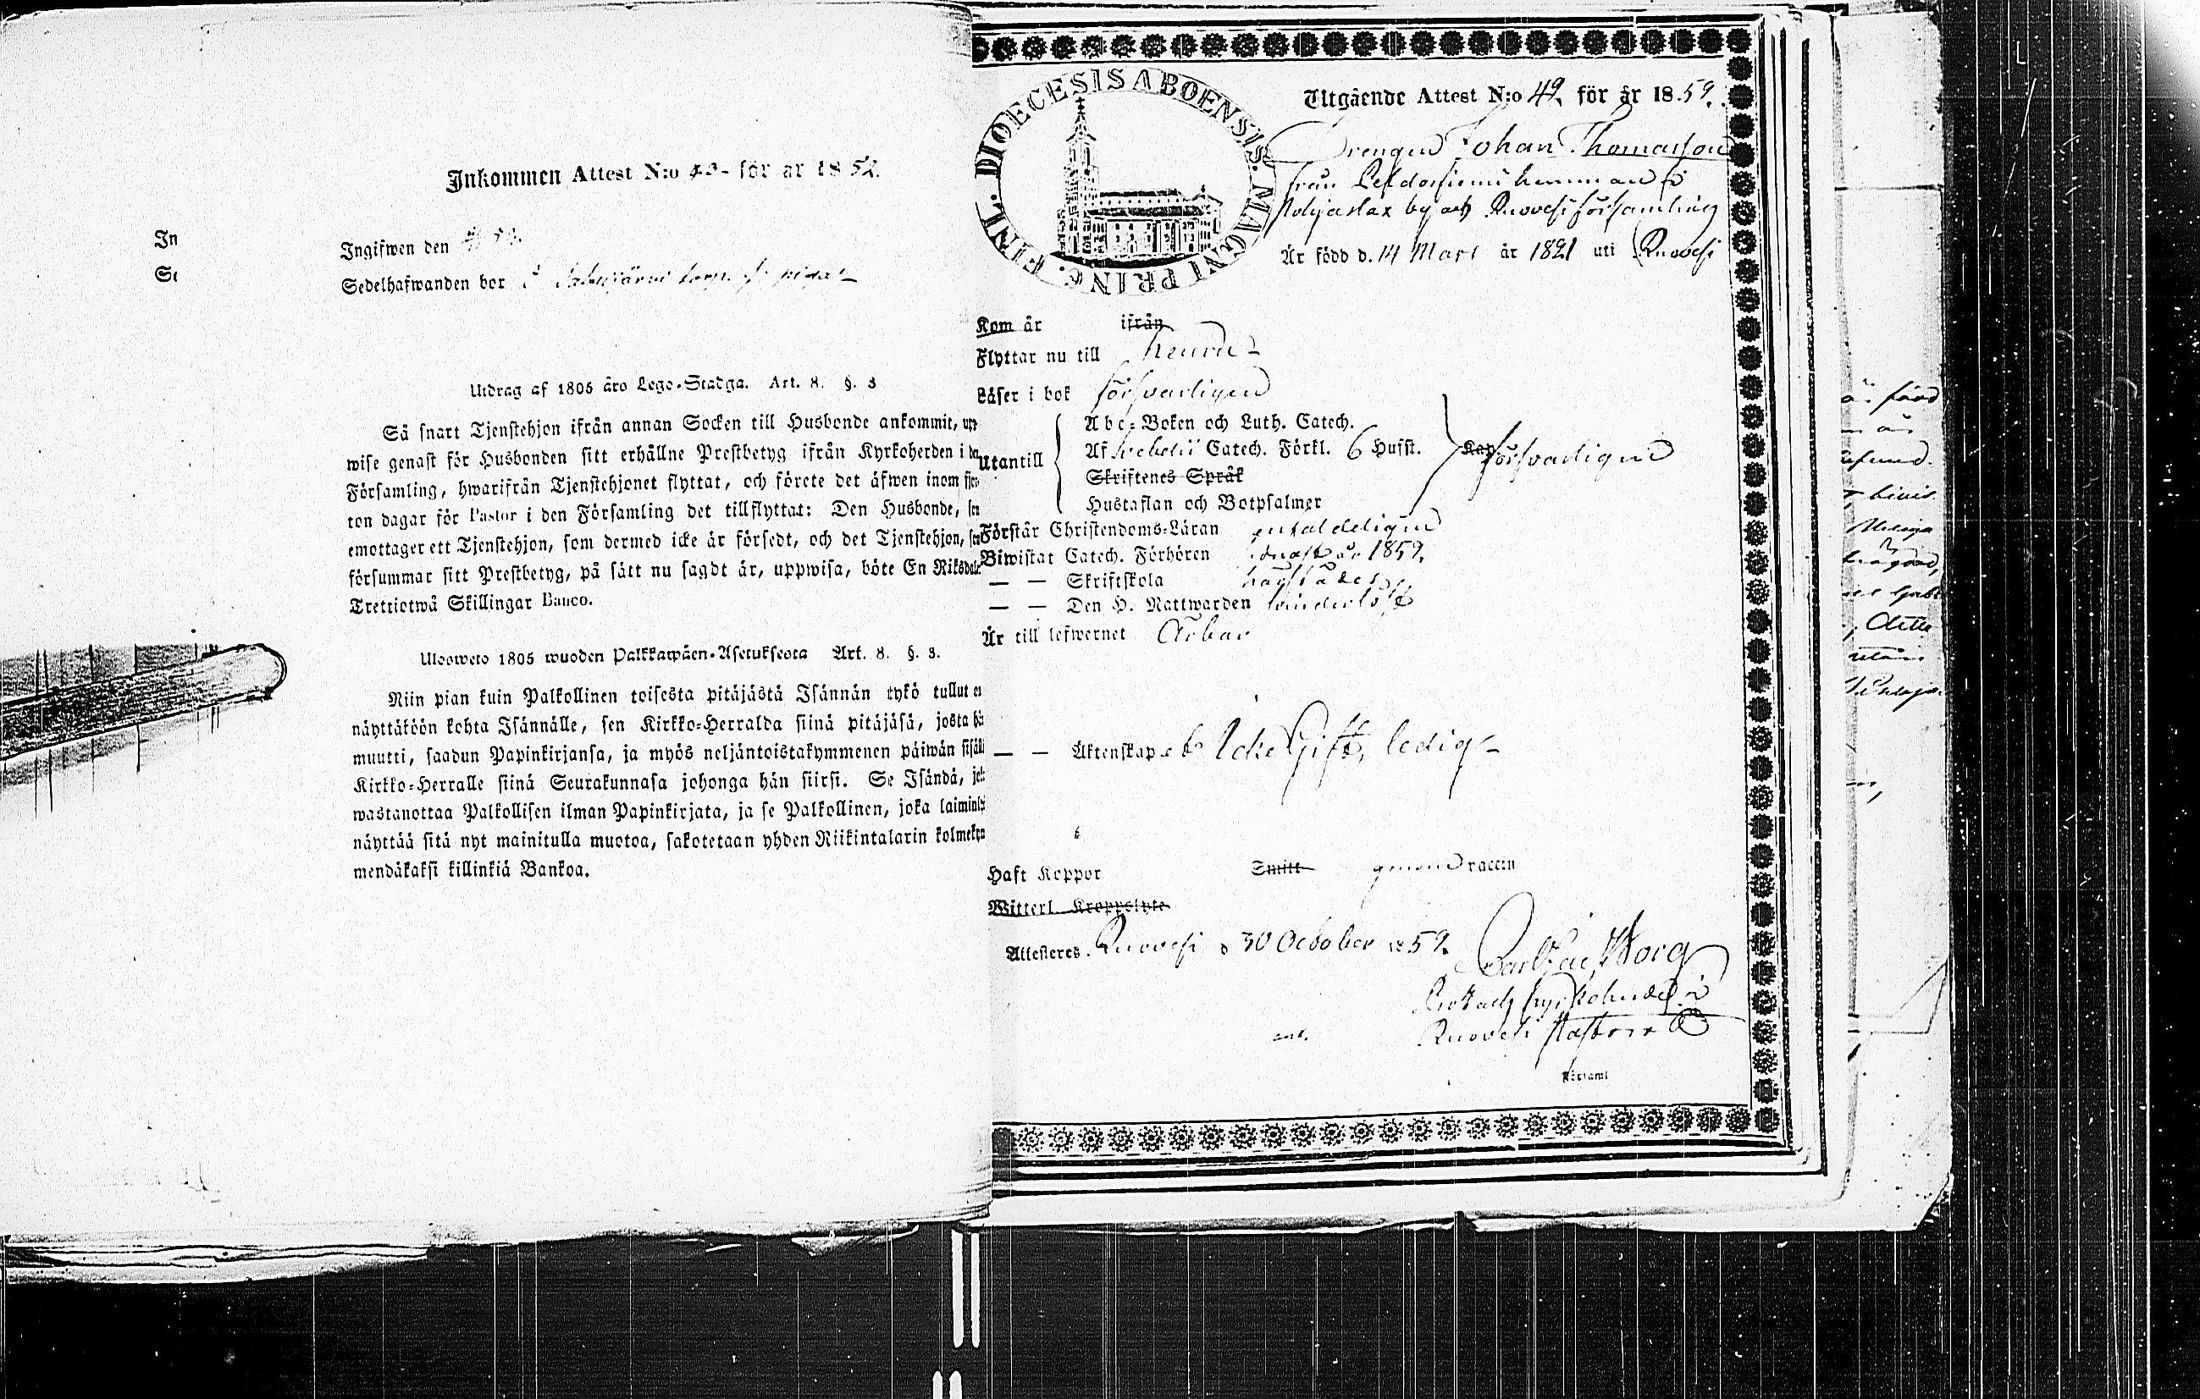 Inkommen Attest N:o 43 för år 1852.
In
Ingifwen den
Se
Sedelhafwanden bor
Utdrag af 1805 års Lego-Stadga. Art. 8. §. 3
Så snart Tjenstehjon ifrån annan Socken till Husbonde ankommit, upp
wise genast för Husbonden sitt erhållne Prestbetyg ifrån Kyrkoherden i den
Församling, hwarifrån Tjenstehjonet flyttat, och förete det äfwen inom fjor
ton dagar för Pastor i den Församling det tillflyttat: Den Husbonde,
emottager ett Tjenstehjon, som dermed icke är försedt, och det Tjenstehjon,
försummar sitt Prestbetyg, på sätt nu sagdt är, uppwisa, böte En Riksdaler
Trettiotwå Skillingar Banco.
Ulosweto 1805 wuoden Palkkawäen-Asetuksesta Art. 8. §. 3.
Niin pian kuin Palkollinen toisesta pitäjästä Isännän tykö tullut on
näyttäköön kohta Isännälle, sen Kirkko-Herralda siinä pitäjäsä, josta hän
muutti, saadun Papinkirjansa, ja myös neljäntoistakymmenen päiwän sisäll
Kirkko-Herralle siinä Seurakunnasa johonga hän siirsi. Se Isändä, jok
wastanottaa Palkollisen ilman Papinkirjata, ja se Palkollinen, joka laiminly
näyttää sitä nyt mainitulla muotoa, sakotetaan yhden Riikintalarin kolmekym
mendäkaksi killinkiä Bankoa.
FINL. DIOECESIS ABOENSIS. MAGNI PRINC.
Utgående Attest N:o 49. för år 1859.
Drengen Johan Thomasson
från hemman i
by och Ruovesi församling
År född d. 14 Mars år 1821 uti Ruovesi
Kom år ifrån
Flyttar nu till Keuru
Läser i bok försvarligen
Utantill
Abc-Boken och Luth. Catech.
Af Svebelii Catech. Förkl. 6 Hufst. Kap försvarligen
Skriftenes Språk
Hustaflan och Botpsalmer
Förstår Christendoms-Läran enfaldeligen
Biwistat Catech. Förhören senast år 1859.
— — Skriftskola
— — Den H. Nattwarden
Är till lefwernet Ärbar
— — Äktenskap Icke Gift, ledig
Haft Koppor Smitt genom vaccin
Witterl. Kroppslyte
Attesteras Ruovesi d 30 October 1859.
Ruovesi Pastorat